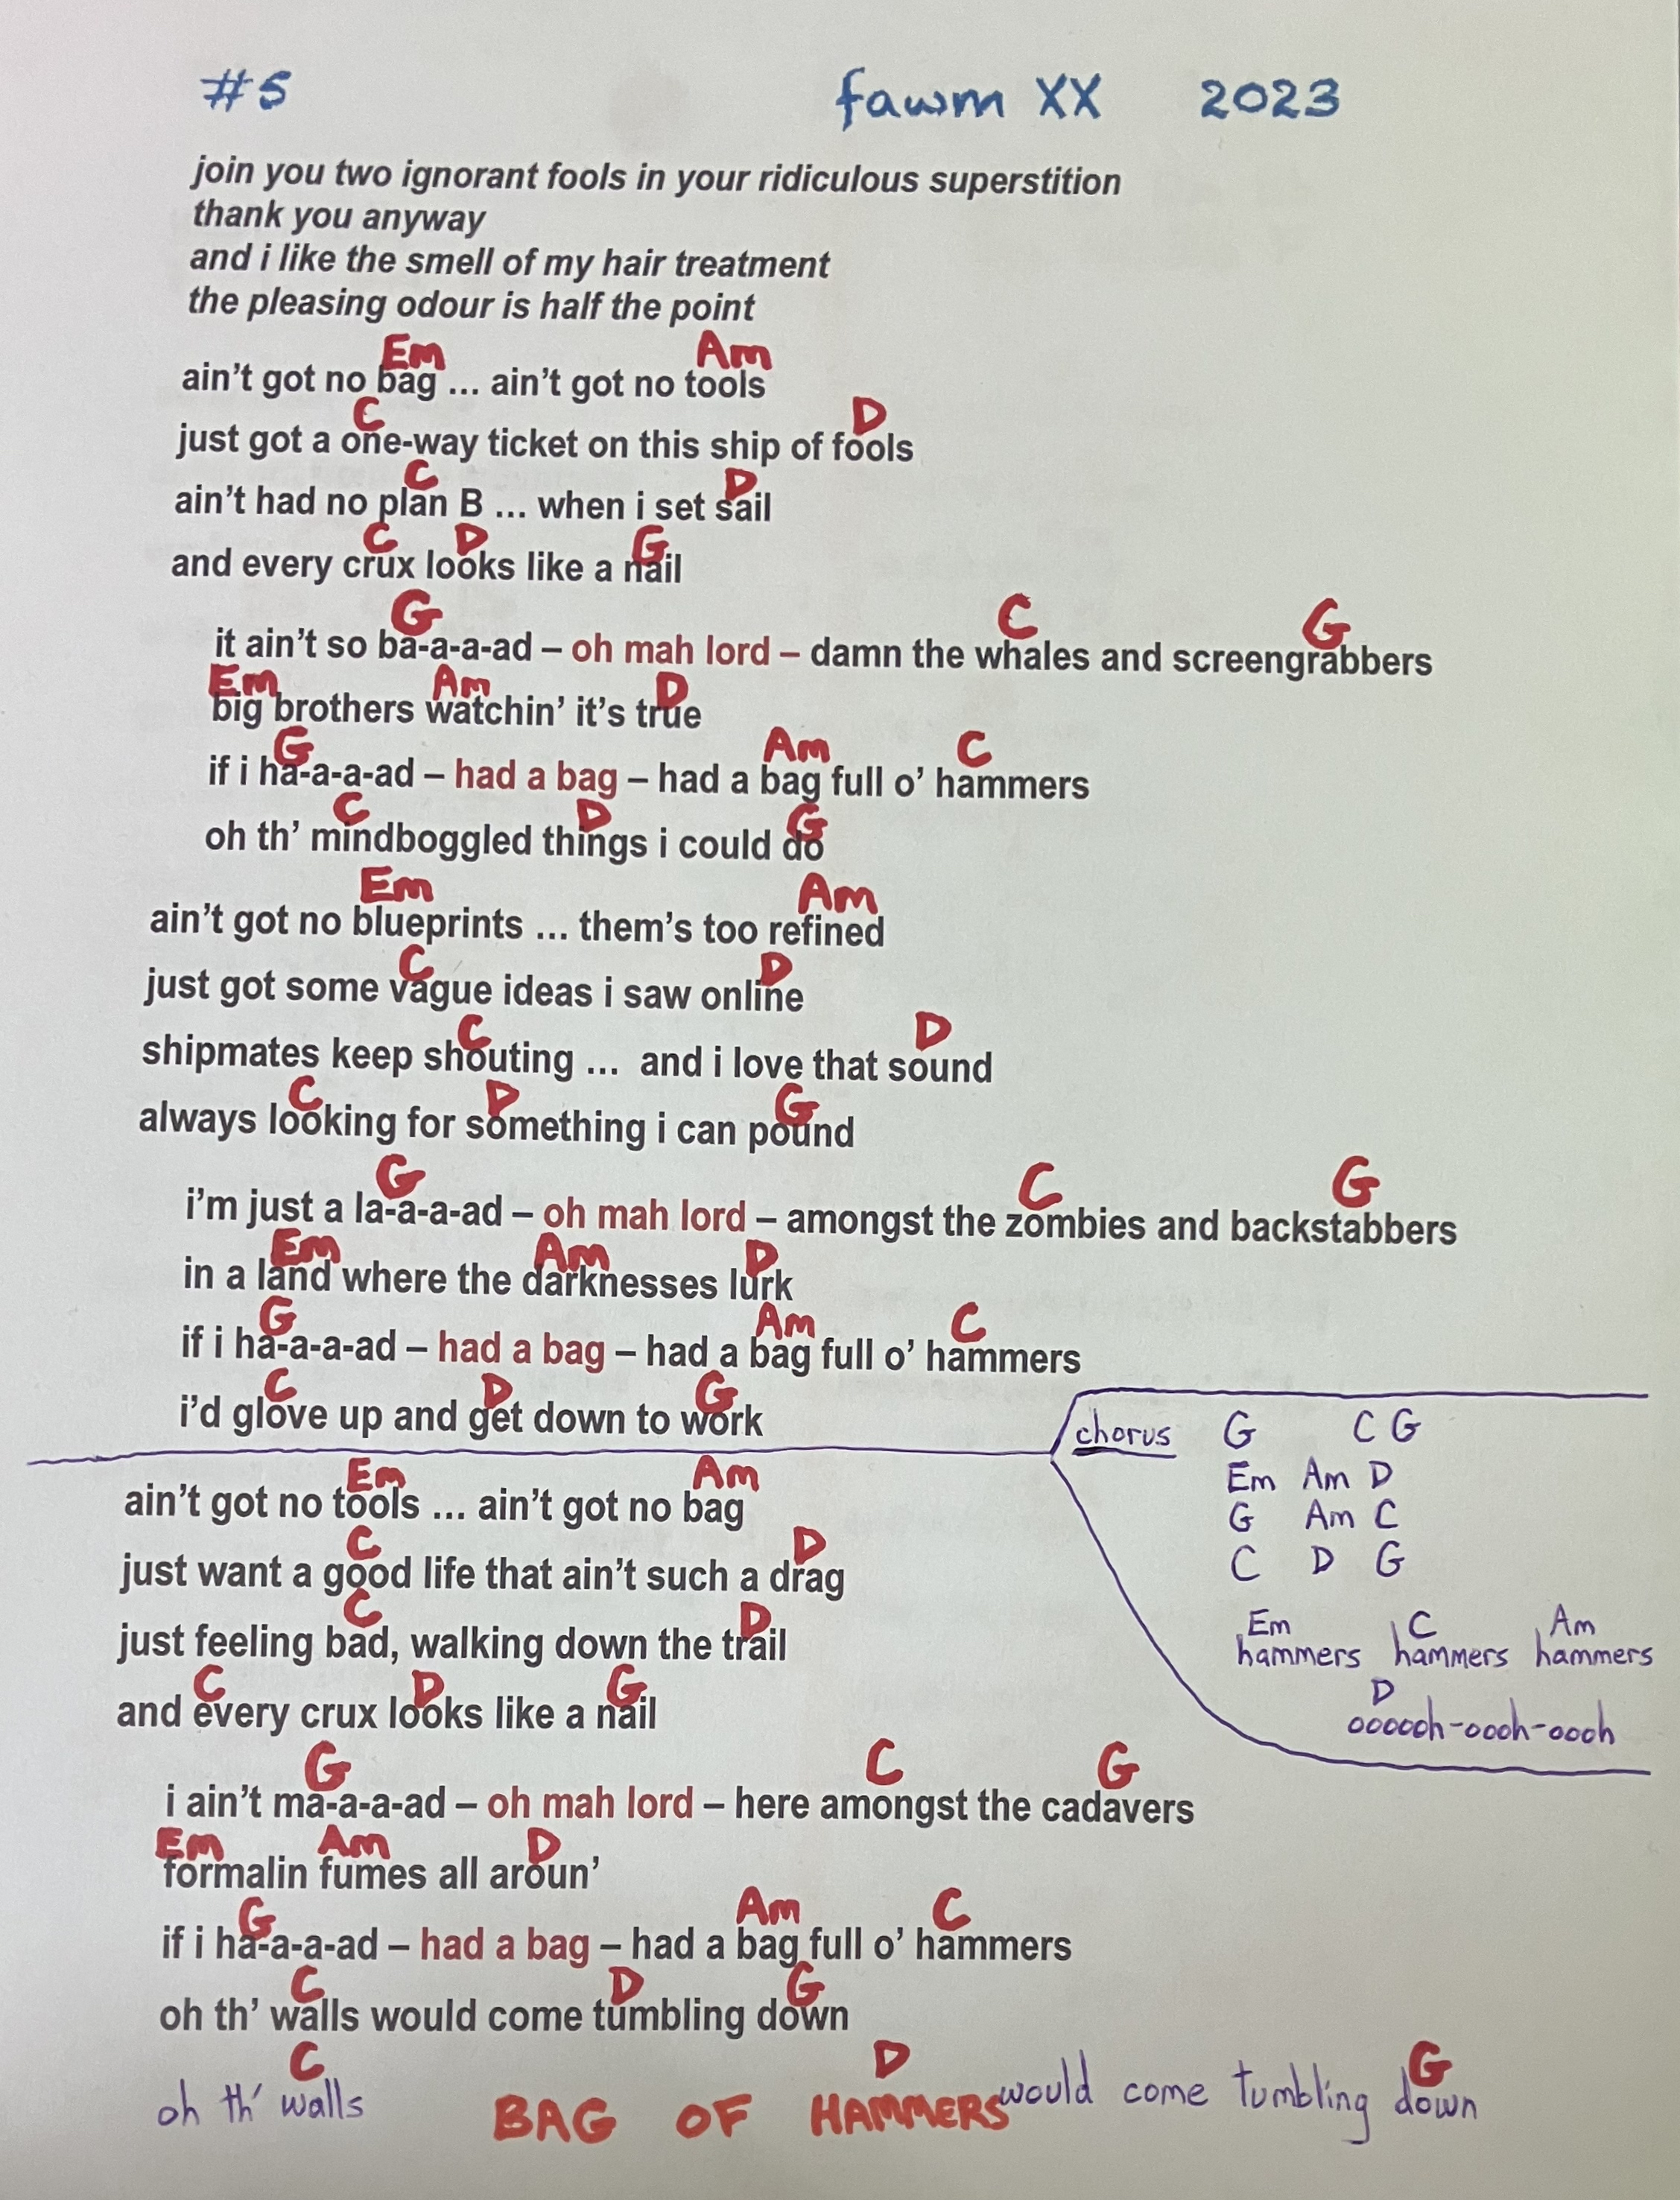 #5 fawm XX 2023
join you two ignorant fools in your ridiculous superstition
thank you anyway
and i like the smell of my hair treatment
the pleasing odour is half the point
Em Am
ain't got no bag ... ain't got no tools
C D
just got a one-way ticket on this ship of fools
C D
ain't had no plan B ... when i set sail
C D G
and every crux looks like a nail
G C G
it ain't so ba-a-a-ad – oh mah lord – damn the whales and screengrabbers
Em Am D
big brothers watchin' it's true
G Am C
if i ha-a-a-ad – had a bag – had a bag full o' hammers
C D G
oh th' mindboggled things i could do
Em Am
ain't got no blueprints ... them's too refined
C D
just got some vague ideas i saw online
C D
shipmates keep shouting ... and i love that sound
C D G
always looking for something i can pound
G C G
i'm just a la-a-a-ad – oh mah lord – amongst the zombies and backstabbers
Em Am D
in a land where the darknesses lurk
G Am C
if i ha-a-a-ad – had a bag – had a bag full o' hammers
C D G
i'd glove up and get down to work
chorus G C G
Em Am D
G Am C
C D G
Em C Am
hammers hammers hammers
D
oooooh-oooh-oooh
Em Am
ain't got no tools ... ain't got no bag
C D
just want a good life that ain't such a drag
C D
just feeling bad, walking down the trail
C D G
and every crux looks like a nail
G C G
i ain't ma-a-a-ad – oh mah lord – here amongst the cadavers
Em Am D
formalin fumes all aroun'
G Am C
if i ha-a-a-ad – had a bag – had a bag full o' hammers
C D G
oh th' walls would come tumbling down
C D G
oh th' walls would come tumbling down
BAG OF HAMMERS